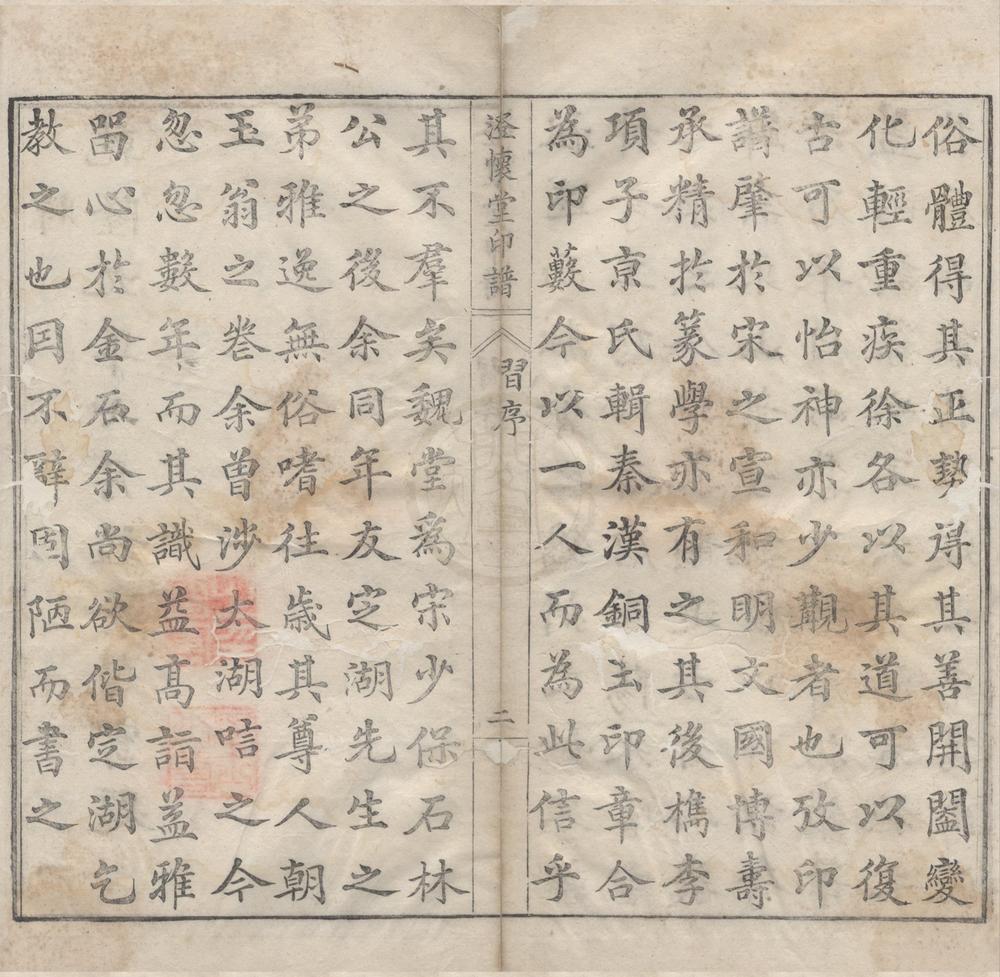 俗體得其正勢得其善開闔變
化輕重疾徐各以其道可以復
古可以怡神亦少覯者也攷印
譜肇於宋之宣和明文國博壽
承精於篆學亦有之其後檇李
項子京氏輯秦漢銅玉印章合
為印藪今以一人而為此信乎
澄懷堂印譜
習序
二
其不羣矣魏堂為宋少保石林
公之後余同年友定湖先生之
弟雅逸無俗嗜往歲其尊人朝
玉翁之卷余曾涉太湖唁之今
忽忽數年而其識益高詣益雅
畱心於金石余尚欲偕定湖乞
教之也囙不辭固陋而書之